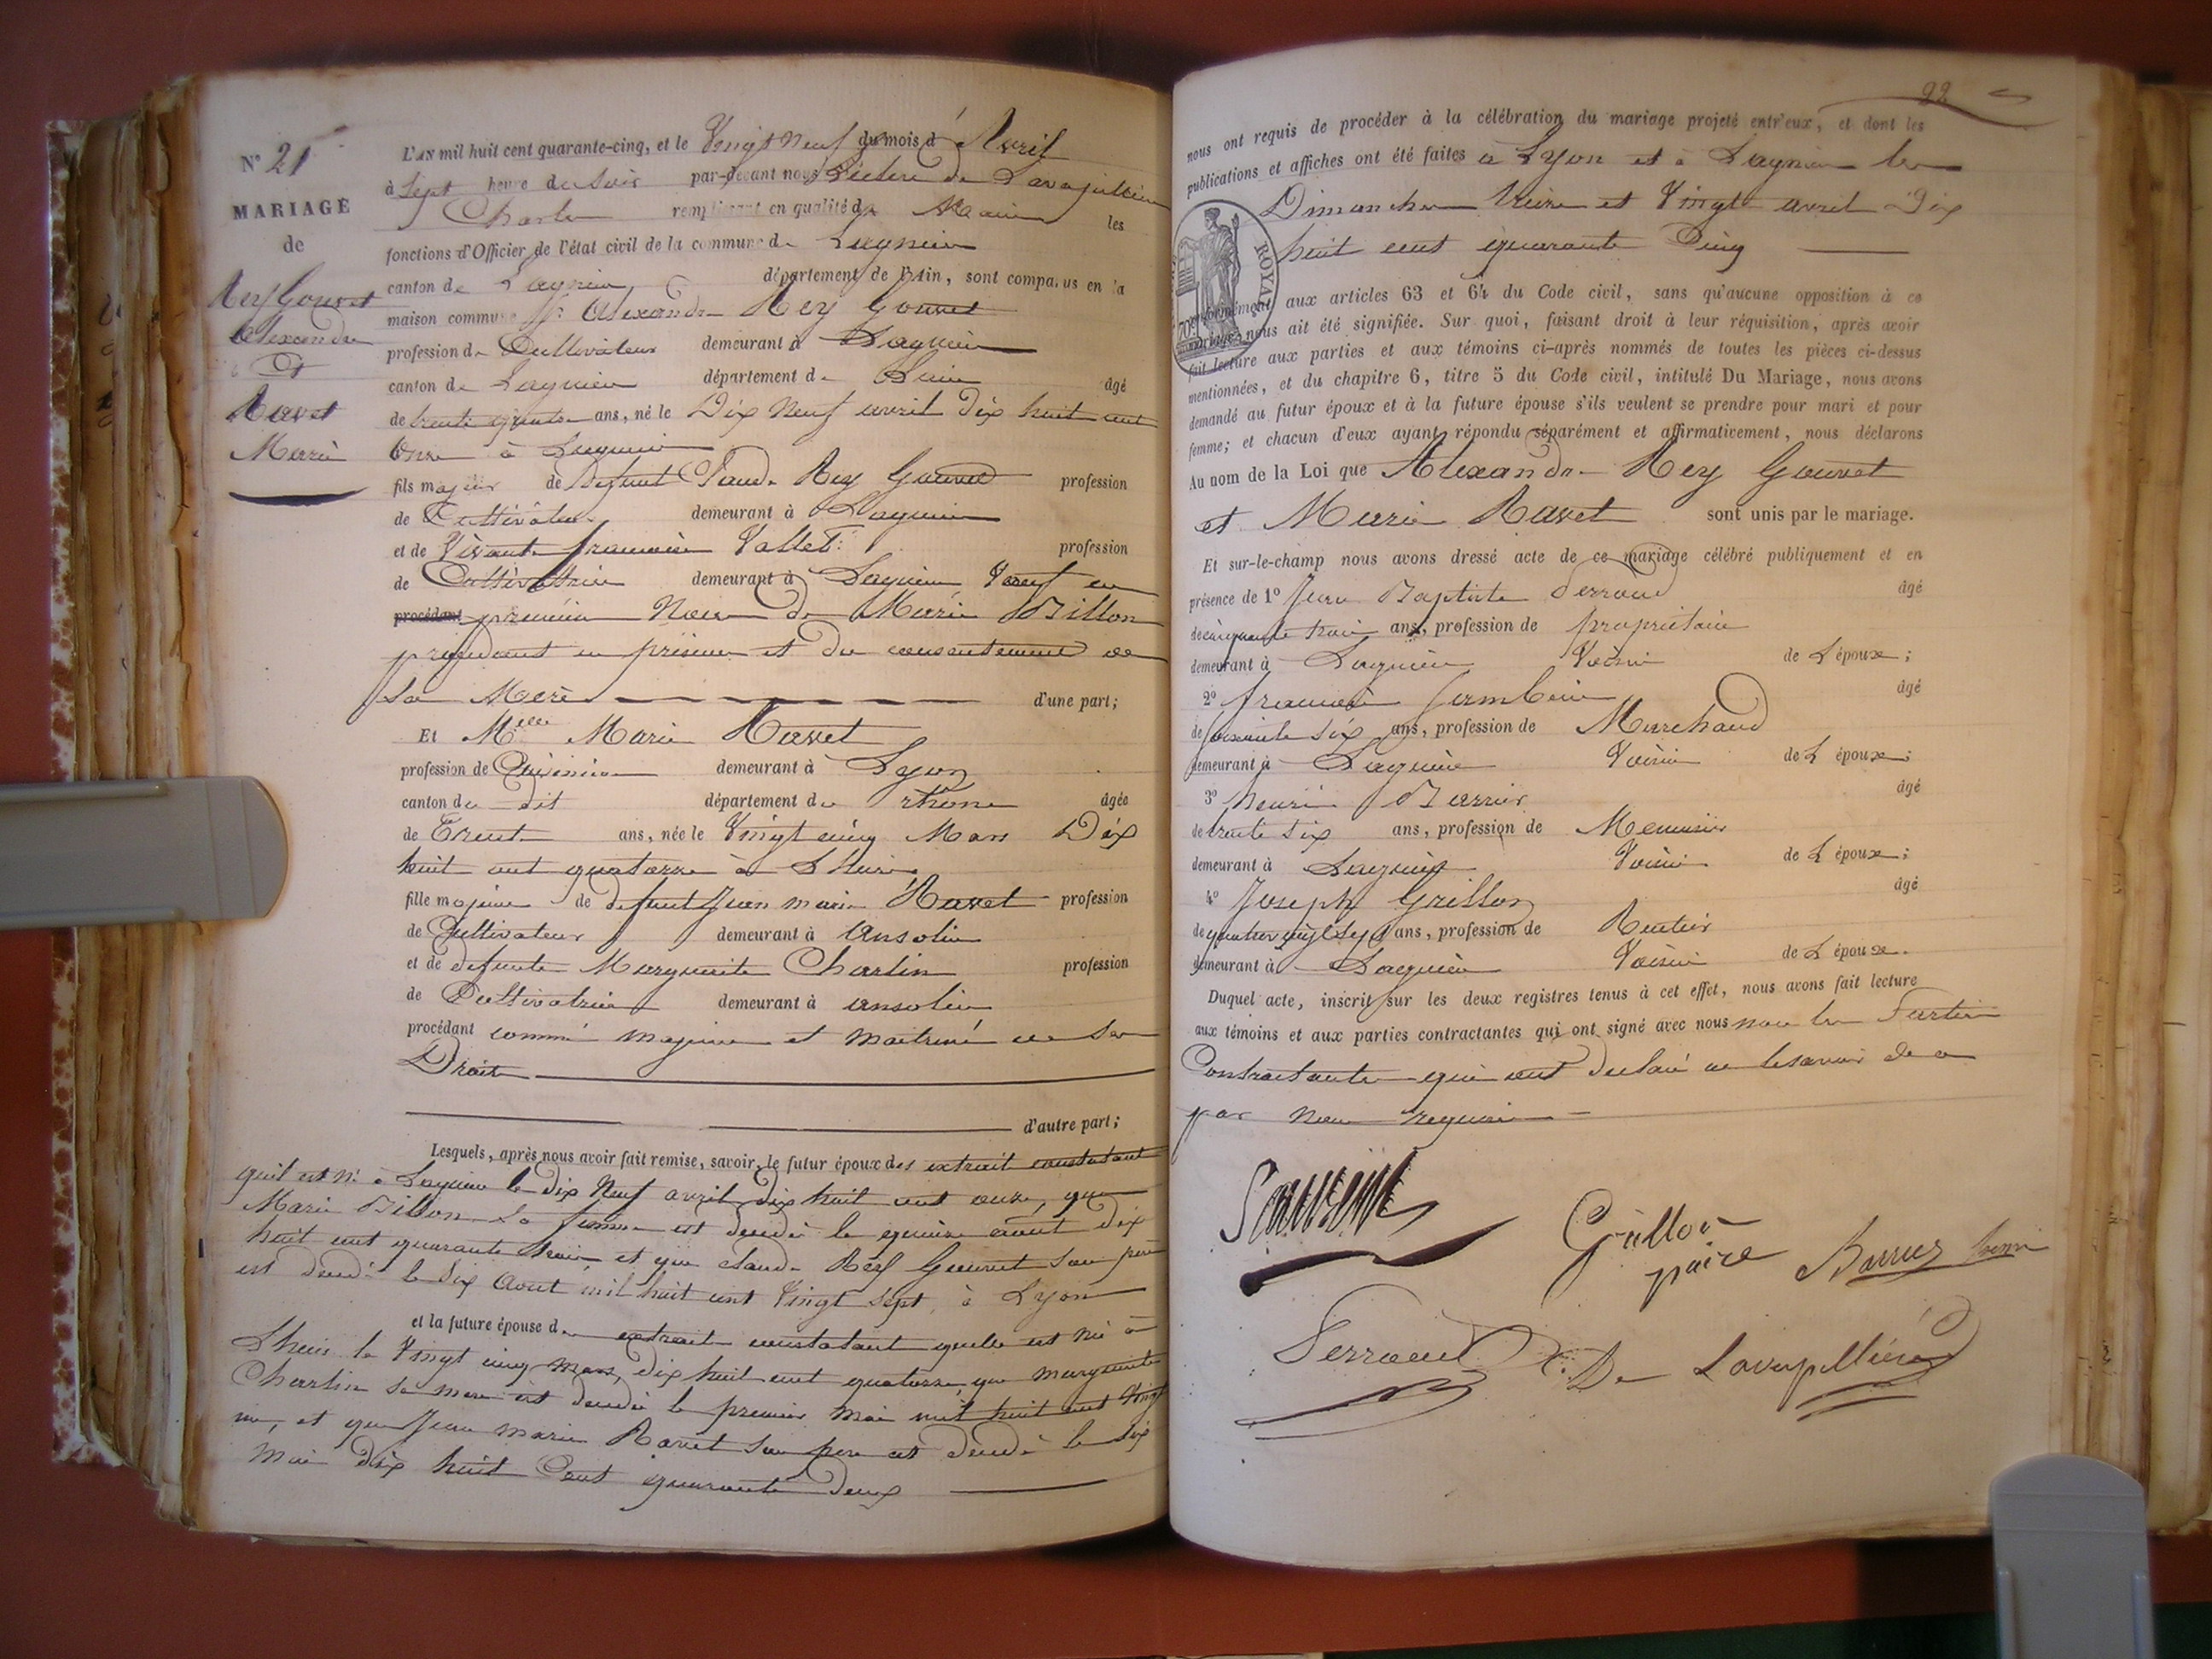 N° 21
MARIAGE
de
Rey Gouvet
Alexandre
Et
Ravet
Marie
L'AN mil huit cent quarante-cinq, et le Vingt neuf du mois d'Avril
à Sept heure du Soir par-devant nous
Charles remplissant en qualité de Maire les
fonctions d'Officier de l'état civil de la commune de Lagnieu
canton de Lagnieu département de l'Ain, sont comparus en la
maison commune Sr Alexandre Rey Gouvet
profession de Cultivateur demeurant à Lagnieu
canton de Lagnieu département de Lain âgé
de trente quatre ans, né le Dix Neuf avril Dix huit cent
Onze à Lagnieu
fils majeur de défunt Claude Rey Gouvet profession
de Cultivateur demeurant à Lagnieu
et de Vivante françoise Vallet profession
de Cultivatrice demeurant à Lagnieu Veuf en
procédant première Noce de Marie Billon
procédant en présence et du consentement de
Sa Mere d'une part;
Et Melle Marie Ravet
profession de Cuisinière demeurant à Lyon
canton du dit département du rhône âgée
de Trente ans, née le Vingt cinq Mars Dix
huit cent quatorze à Lhuis
fille majeure de défunt Jean marie Ravet profession
de Cultivateur demeurant à Ansolin
et de défunte Marguerite Charlin profession
de Cultivatrice demeurant à ansolin
procédant comme majeure et maitresse de ses
Droits
d'autre part;
Lesquels, après nous avoir fait remise, savoir, le futur époux des extrait constatant
quil est né à Lagnieu le dix Neuf avril dix huit cent onze, que
Marie Billon sa femme est décédée le quinze aout dix
huit cent quarante trois, et que Claude Rey Gouvet son père
est décédé le Six Aout mil huit cent Vingt Sept à Lyon
et la future épouse d extrait constatant quelle est née à
Lhuis le Vingt cinq Mars, dix huit cent quatorze que marguerite
Charlin sa mere est décédée le premier Mai mil huit cent Vingt
et que Jean marie Ravet son pere est décédé le dix
Mai dix huit Cent quarante deux
22
nous ont requis de procéder à la célébration du mariage projeté entr'eux, et dont les
publications et affiches ont été faites à Lyon et à Lagnieu les
Dimanches treize et Vingt avril Dix
huit cent quarante Cinq
ROYAL
70c
conformément aux articles 63 et 64 du Code civil, sans qu'aucune opposition à ce
mariage nous ait été signifiée. Sur quoi, faisant droit à leur réquisition, après avoir
fait lecture aux parties et aux témoins ci-après nommés de toutes les pièces ci-dessus
mentionnées, et du chapitre 6, titre 5 du Code civil, intitulé Du Mariage, nous avons
demandé au futur époux et à la future épouse s'ils veulent se prendre pour mari et pour
femme; et chacun d'eux ayant répondu séparément et affirmativement, nous déclarons
Au nom de la Loi que Alexandre Rey Gouvet
et Marie Ravet sont unis par le mariage.
Et sur-le-champ nous avons dressé acte de ce mariage célébré publiquement et en
présence de 1° Jean Baptiste Serraud âgé
de cinquante trois ans, profession de propriétaire
demeurant à Lagnieu Voisin de L'époux;
2° françois âgé
de soixante six ans, profession de Marchand
demeurant à Lagnieu Voisin de L époux;
3° henri Barrier âgé
de trente six ans, profession de Menuisier
demeurant à Lagnieu Voisin de L époux;
4° Joseph Grillon âgé
de ans, profession de Rentier
demeurant à Lagnieu Voisin de L époux.
Duquel acte, inscrit sur les deux registres tenus à cet effet, nous avons fait lecture
aux témoins et aux parties contractantes qui ont signé avec nous non les Parties
Contractantes qui ont déclaré ne le savoir de ce
par Nous requis
Grillon
père
Serraud
De Lavapillière